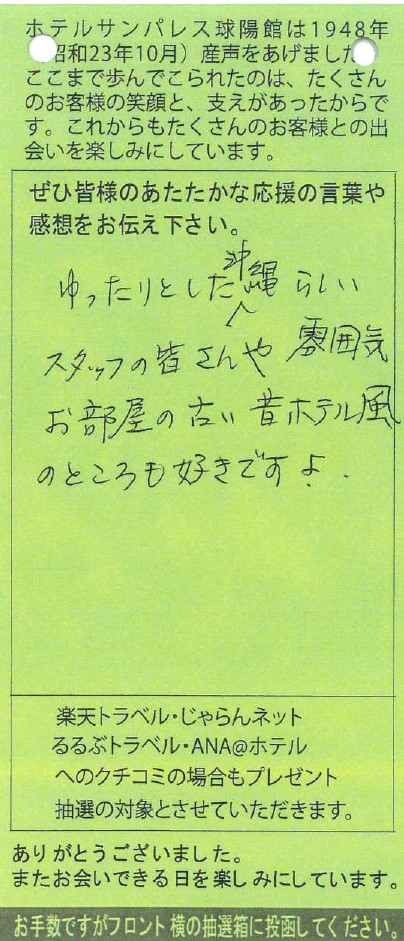 ホテルサンパレス球陽館は1948年
昭和23年10月）産声をあげまし
ここまで歩んでこられたのは、たくさん
のお客様の笑顔と、支えがあったからで
す。これからもたくさんのお客様との出
会いを楽しみにしています。
ぜひ皆様のあたたかな応援の言葉や
感想をお伝え下さい。
ゆったりとした沖縄らしい
スタッフの皆さんや雰囲気
お部屋の古い昔ホテル風
のところも好きですよ.
楽天トラベル・じゃらんネット
るるぶトラベル・ANA@ホテル
へのクチコミの場合もプレゼント
抽選の対象とさせていただきます。
ありがとうございました。
またお会いできる日を楽しみにしています。
お手数ですがフロント横の抽選箱に投函してください。